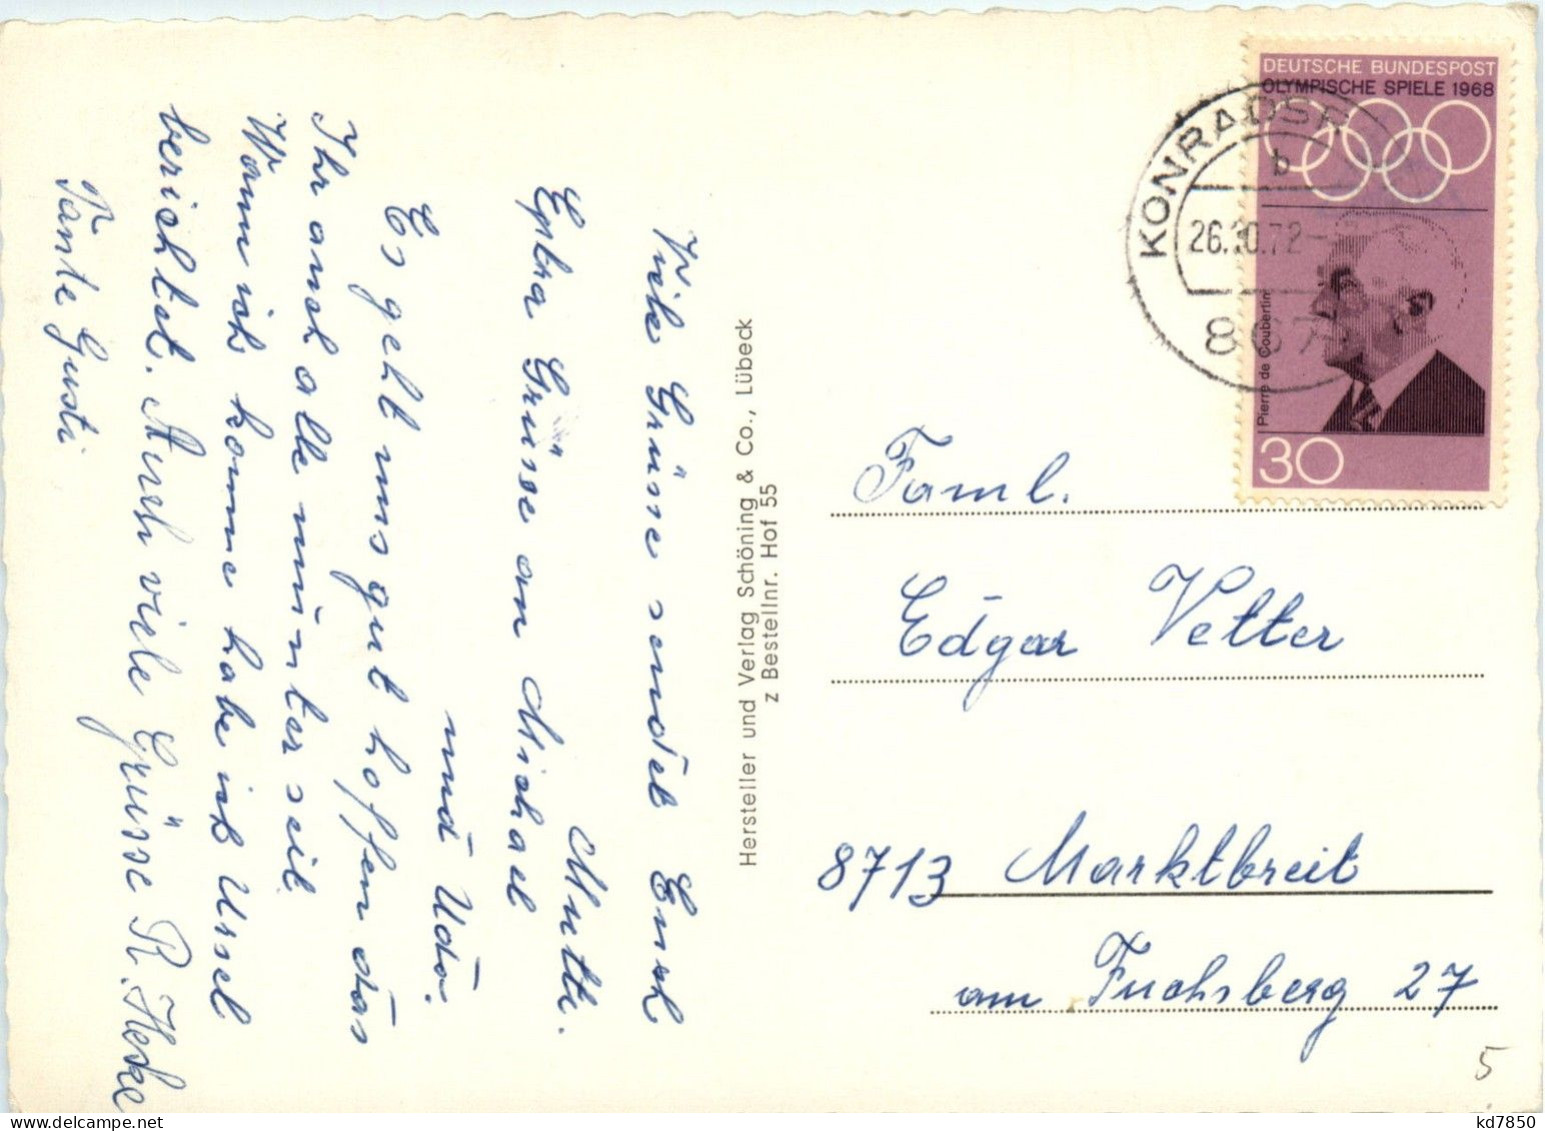 Viele Grüsse sendet Euch
Mutti.
Extra Grüsse an Michael
und Udo.
Es geht uns gut hoffen das
Ihr auch alle munter seit
Wann ich komme habe ich Ursel
berichtet. Auch viele Grüsse R. Heske
Tante Gusti
Hersteller und Verlag Schöning & Co., Lübeck
z Bestellnr. Hof 55
DEUTSCHE BUNDESPOST
OLYMPISCHE SPIELE 1968
Pierre de Coubertin
30
KONRADSR
b
26.10.72
867
Faml.
Edgar Vetter
8713 Marktbreit
am Fuchsberg 27
5
kd7850